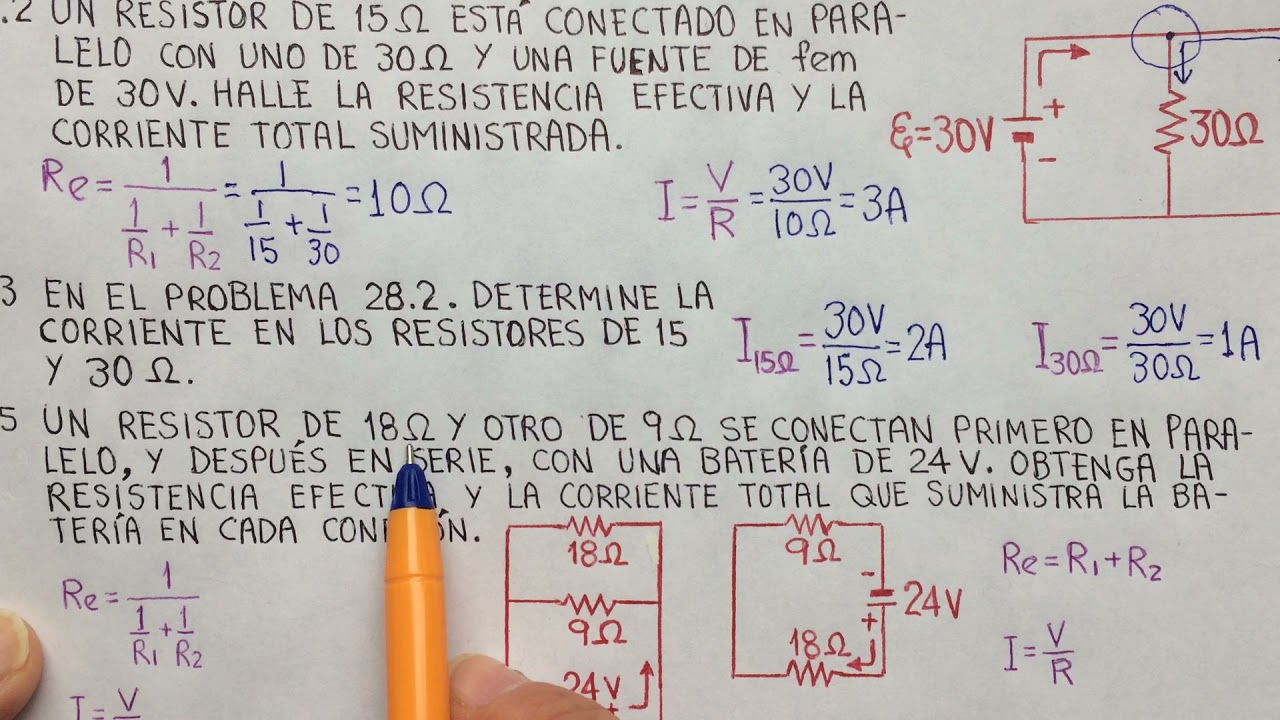 .2 UN RESISTOR DE 15Ω ESTÁ CONECTADO EN PARA-
LELO CON UNO DE 30Ω Y UNA FUENTE DE fem
DE 30V. HALLE LA RESISTENCIA EFECTIVA Y LA
CORRIENTE TOTAL SUMINISTRADA.
ℰ=30V
+
-
30Ω
Re = 1/(1/R1 + 1/R2) = 1/(1/15 + 1/30) = 10Ω
I = V/R = 30V/10Ω = 3A
3 EN EL PROBLEMA 28.2. DETERMINE LA
CORRIENTE EN LOS RESISTORES DE 15
Y 30 Ω.
I15Ω = 30V/15Ω = 2A
I30Ω = 30V/30Ω = 1A
5 UN RESISTOR DE 18Ω Y OTRO DE 9Ω SE CONECTAN PRIMERO EN PARA-
LELO, Y DESPUÉS EN SERIE, CON UNA BATERÍA DE 24 V. OBTENGA LA
RESISTENCIA Y LA CORRIENTE TOTAL QUE SUMINISTRA LA BA-
TERÍA EN CADA
Re = 1/(1/R1 + 1/R2)
I = V
18Ω
9Ω
24V
+
9Ω
-
24V
+
18Ω
Re = R1 + R2
I = V/R